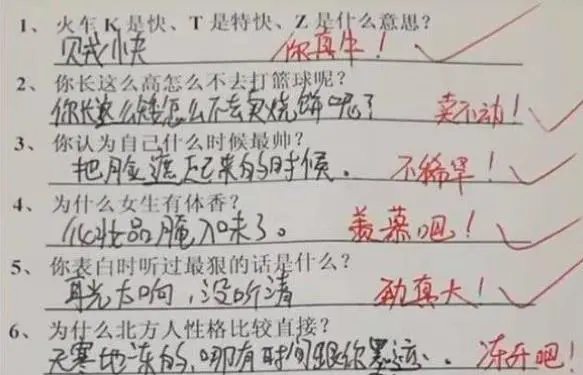 1、火车K是快、T是特快、Z是什么意思？
贼快 你真牛！
2、你长这么高怎么不去打篮球呢？
你长这么矮怎么不去卖烧饼呢？ 卖不动！
3、你认为自己什么时候最帅？
把脸遮起来的时候。 不稀罕！
4、为什么女生有体香？
化妆品腌入味了。 羡慕吧！
5、你表白时听过最狠的话是什么？
耳光太响，没听清 劲真大！
6、为什么北方人性格比较直接？
天寒地冻的，哪有时间跟你墨迹。 冻歼吧！